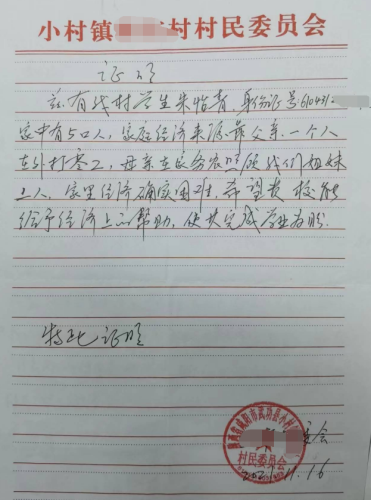 小村镇 村村民委员会
证明
兹有我村学生朱怡青，身份证号：610431
家中有5口人，家庭经济来源靠父亲一个人
在外打零工，母亲在家务农照顾我们姐妹
三人，家里经济确实困难，希望贵校能
给予经济上的帮助，使其完成学业为盼.
特此证明
陕西省咸阳市武功县小村
村民委员会
委会
11.16